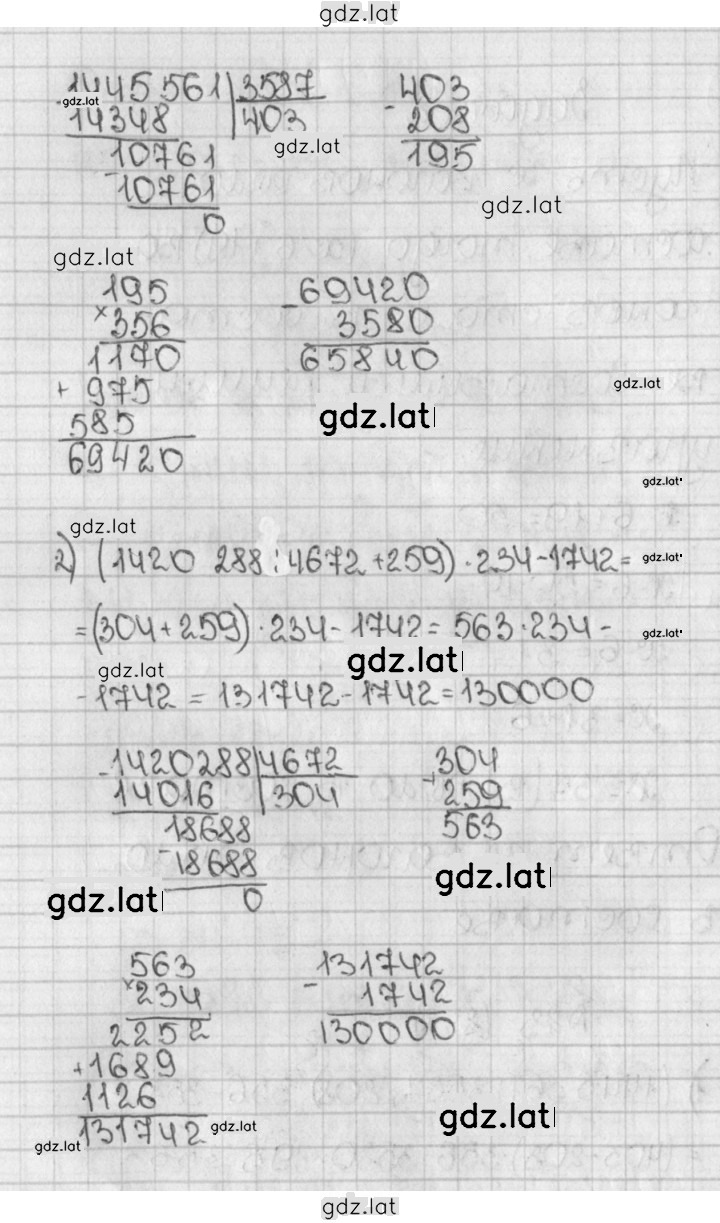 gdz.lat
1445561 | 3587
gdz.lat
14348 | 403
10761
- 10761
0
403
- 208
195
gdz.lat
gdz.lat
gdz.lat
195
× 356
1170
+ 975
585
69420
- 69420
3580
65840
gdz.lat
gdz.lat
gdz.lat
gdz.lat
2) (1420 288 : 4672 + 259) · 234 - 1742 =
gdz.lat
= (304 + 259) · 234 - 1742 = 563 · 234 -
gdz.lat
gdz.lat
gdz.lat
- 1742 = 131742 - 1742 = 130000
- 1420288 | 4672
14016 | 304
18688
- 18688
0
304
+ 259
563
gdz.lat
gdz.lat
563
× 234
2252
+ 1689
1126
131742
131742
- 1742
130000
gdz.lat
gdz.lat
gdz.lat
gdz.lat